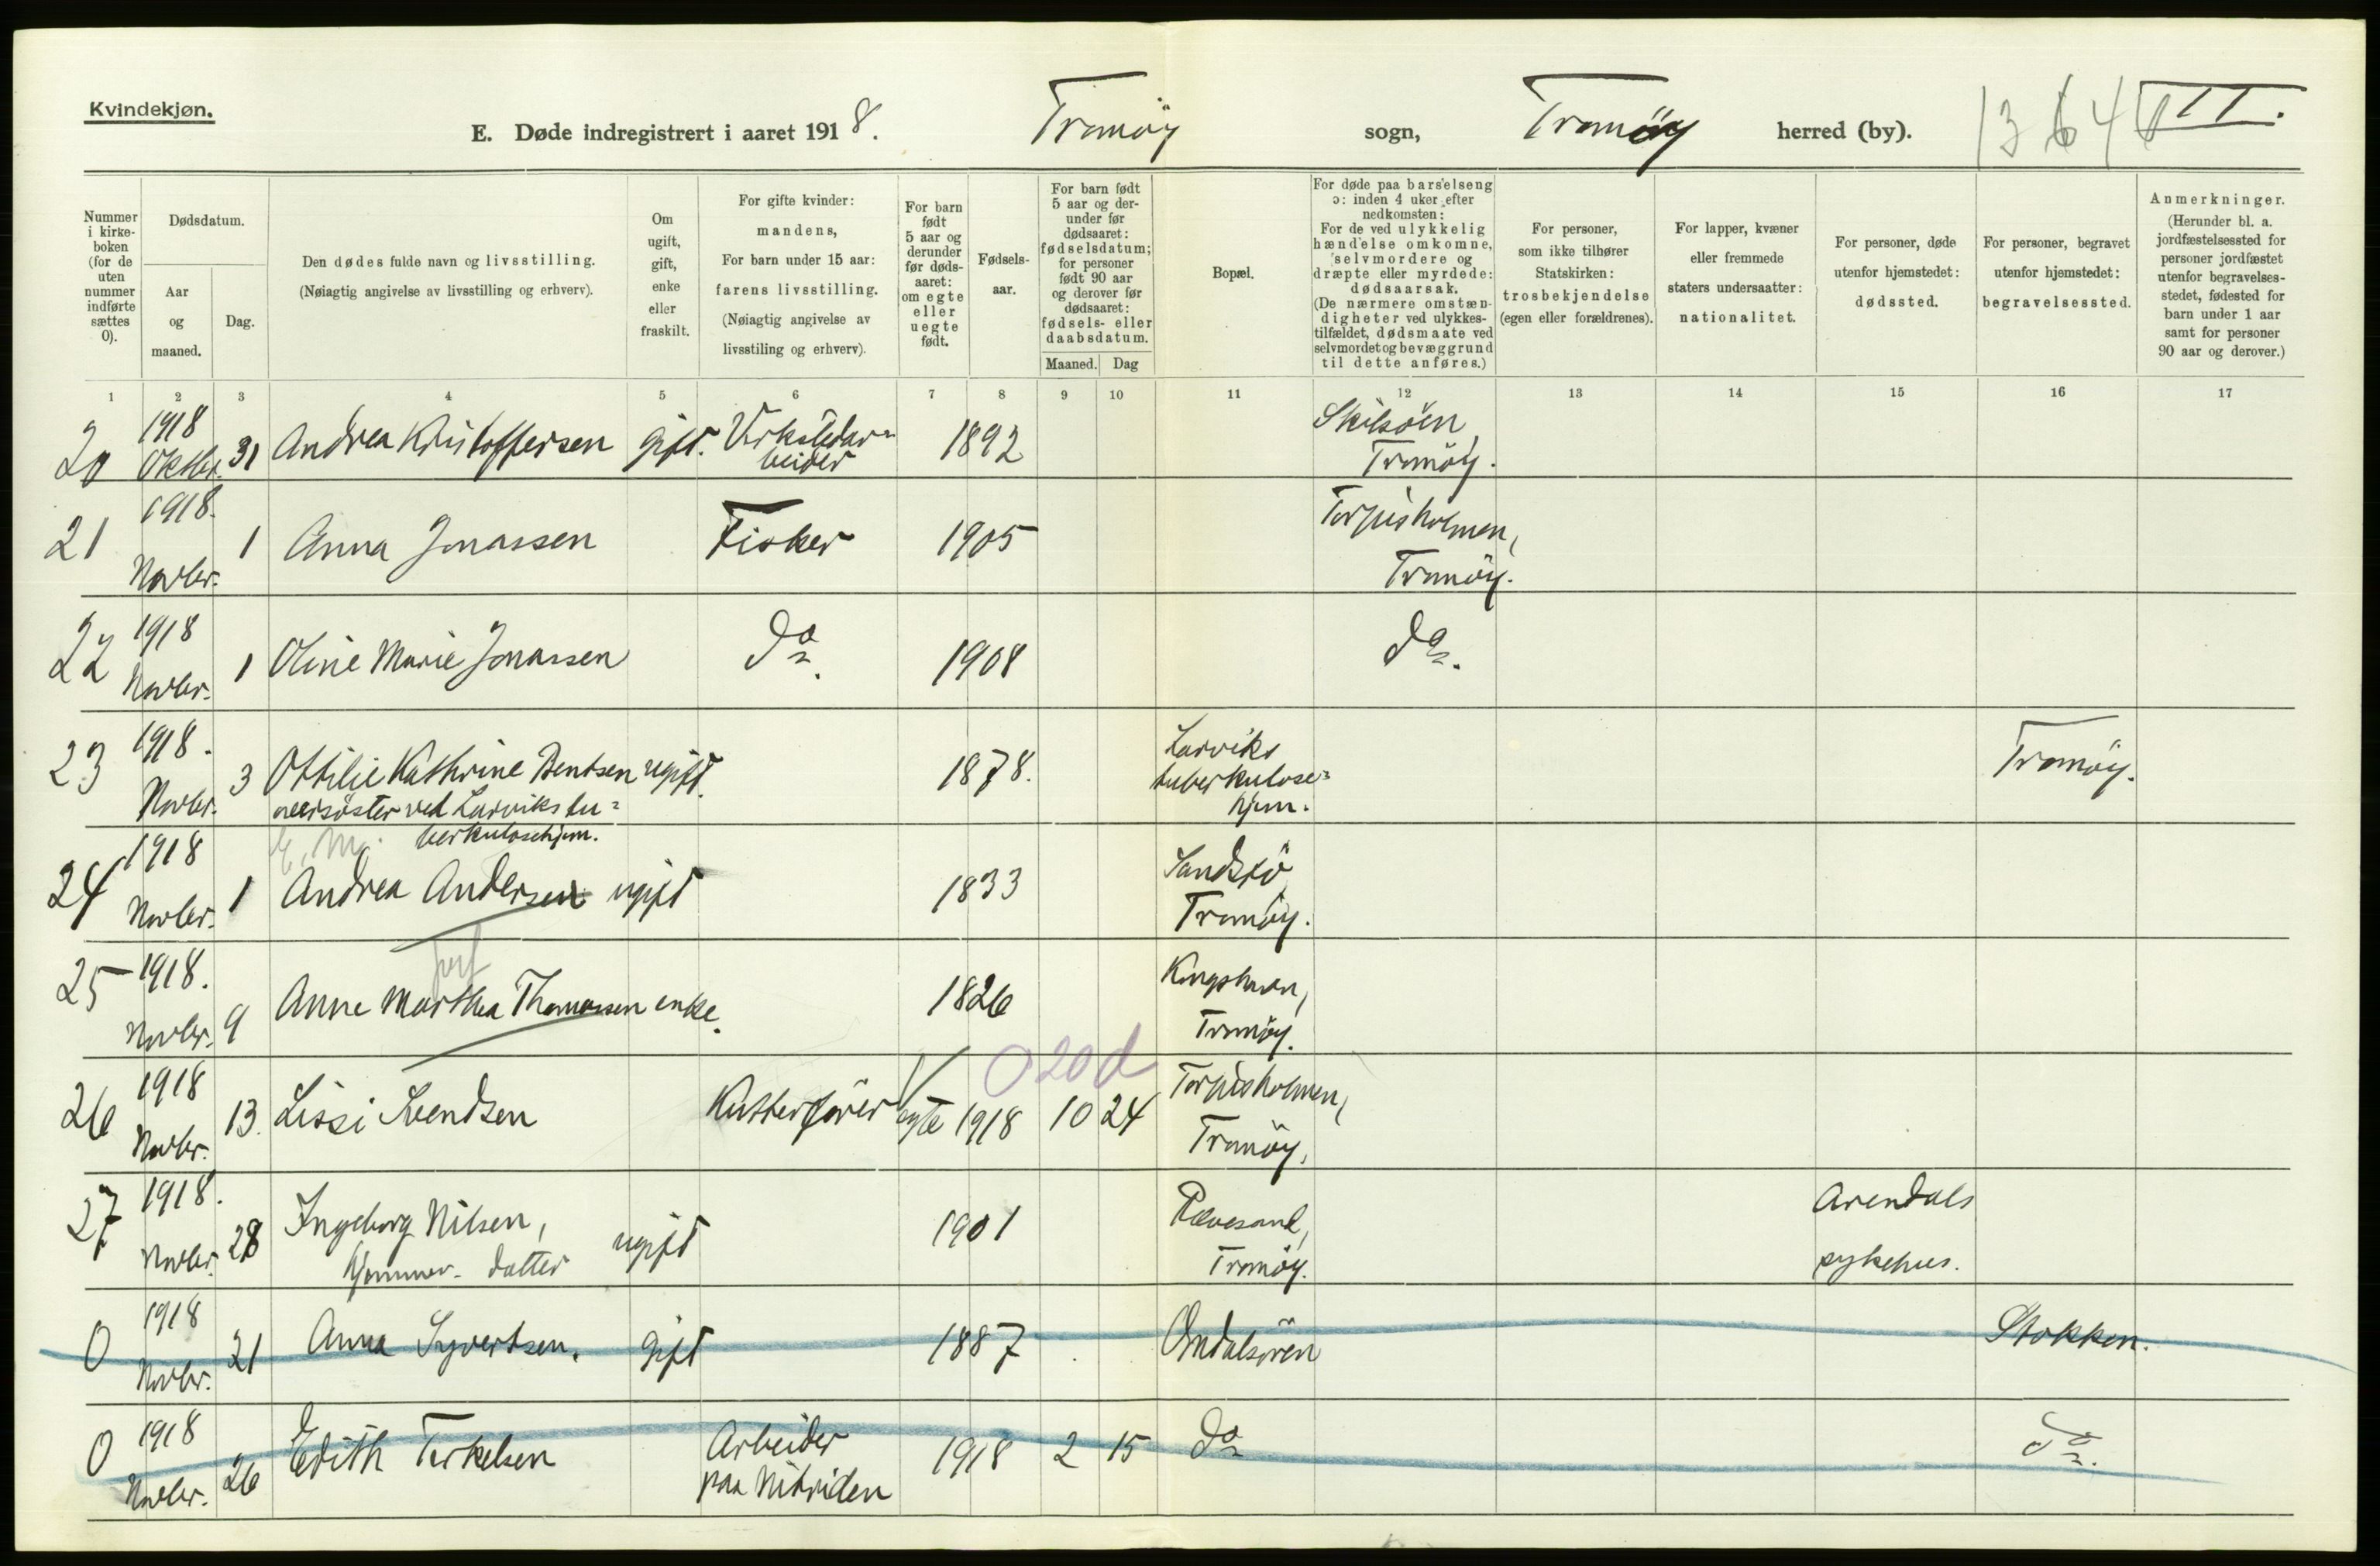 Kvindekjøn.
E. Døde indregistrert i aaret 1918. Tromöy sogn, Tromöy herred (by). 1364 III.
Nummer i kirkeboken (for de uten nummer indførte sættes 0).
Dødsdatum.
Aar og maaned.
Dag.
Den dødes fulde navn og livsstilling.
(Nøiagtig angivelse av livsstilling og erhverv).
Om ugift, gift, enke eller fraskilt.
For gifte kvinder: mandens,
For barn under 15 aar: farens livsstilling.
(Nøiagtig angivelse av livsstiling og erhverv).
For barn født 5 aar og derunder før dødsaaret: om egte eller uegte født.
Fødselsaar.
For barn født 5 aar og derunder før dødsaaret: fødselsdatum; for personer født 90 aar og derover før dødsaaret: fødsels- eller daabsdatum.
Maaned. Dag
Bopæl.
For døde paa barselseng ɔ: inden 4 uker efter nedkomsten:
For de ved ulykkelig hændelse omkomne, selvmordere og dræpte eller myrdede: dødsaarsak.
(De nærmere omstændigheter ved ulykkestilfældet, dødsmaate ved selvmordet og bevæggrund til dette anføres.)
For personer, som ikke tilhører Statskirken: trosbekjendelse (egen eller forældrenes).
For lapper, kvæner eller fremmede staters undersaatter: nationalitet.
For personer, døde utenfor hjemstedet: dødssted.
For personer, begravet utenfor hjemstedet: begravelsessted.
Anmerkninger.
(Herunder bl. a. jordfæstelsessted for personer jordfæstet utenfor begravelsesstedet, fødested for barn under 1 aar samt for personer 90 aar og derover.)
1 2 3 4 5 6 7 8 9 10 11 12 13 14 15 16 17
20 1918 Oktbr. 31 Andrea Kristoffersen gift. Verkstedarbeider 1892 Skilsöen, Tromöy.
21 1918. Novbr. 1 Anna Jonassen Fisker 1905 Torjusholmen, Tromöy.
22 1918 Novbr. 1 Oline Marie Jonassen do. 1908 do.
23 1918. Novbr. 3 Ottilie Kathrine Bentsen ugift. 1878. Larviks tuberkulosehjem. Tromöy.
oversöster ved Larviks tuberkulosehjem.
24 1918 Novbr. 1 E. M. Andrea Andersen ugift 1833 Sandstö, Tromöy.
25 1918. Novbr. 9 Anne Marthea Thomassen enke. 1826 Kongshavn, Tromöy.
020d
26 1918 Novbr. 13. Lissi Svendsen Kutterförer egte 1918 10 24 Torjusholmen, Tromöy.
27 1918. Novbr. 28 Ingeborg Nilsen, hjemmev. datter ugift 1901 Revesand, Tromöy. Arendals sykehus.
0 1918 Novbr. 21 Anna Syvertsen. gift 1887 Omdalsören Stokken.
0 1918 Novbr. 26 Edith Terkelsen Arbeider paa Nitriden 1918 2 15 do do.